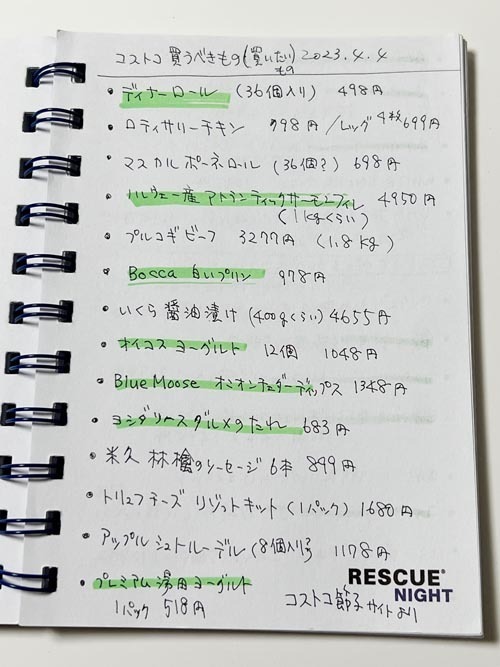 コストコ 買うべきもの(買いたいもの) 2023.4.4
・ディナーロール (36個入り) 498円
・ロティサリーチキン 798円 /レッグ4本699円
・マスカルポーネロール (36個?) 698円
・ノルウェー産アトランティックサーモンフィレ 4950円
(1kgくらい)
・プルコギビーフ 3277円 (1.8kg)
・Bocca 白いプリン 978円
・いくら醤油漬け (400gくらい) 4655円
・オイコスヨーグルト 12個 1048円
・Blue Moose オニオンチェダーディップス 1348円
・ヨシダソースグルメのたれ 683円
・米久 林檎のソーセージ 6本 899円
・トリュフチーズ リゾットキット (1パック) 1680円
・アップルシュトルーデル (8個入り) 1178円
・プレミアム湯田ヨーグルト
1パック 518円
コストコ節子サイトより
RESCUE®
NIGHT